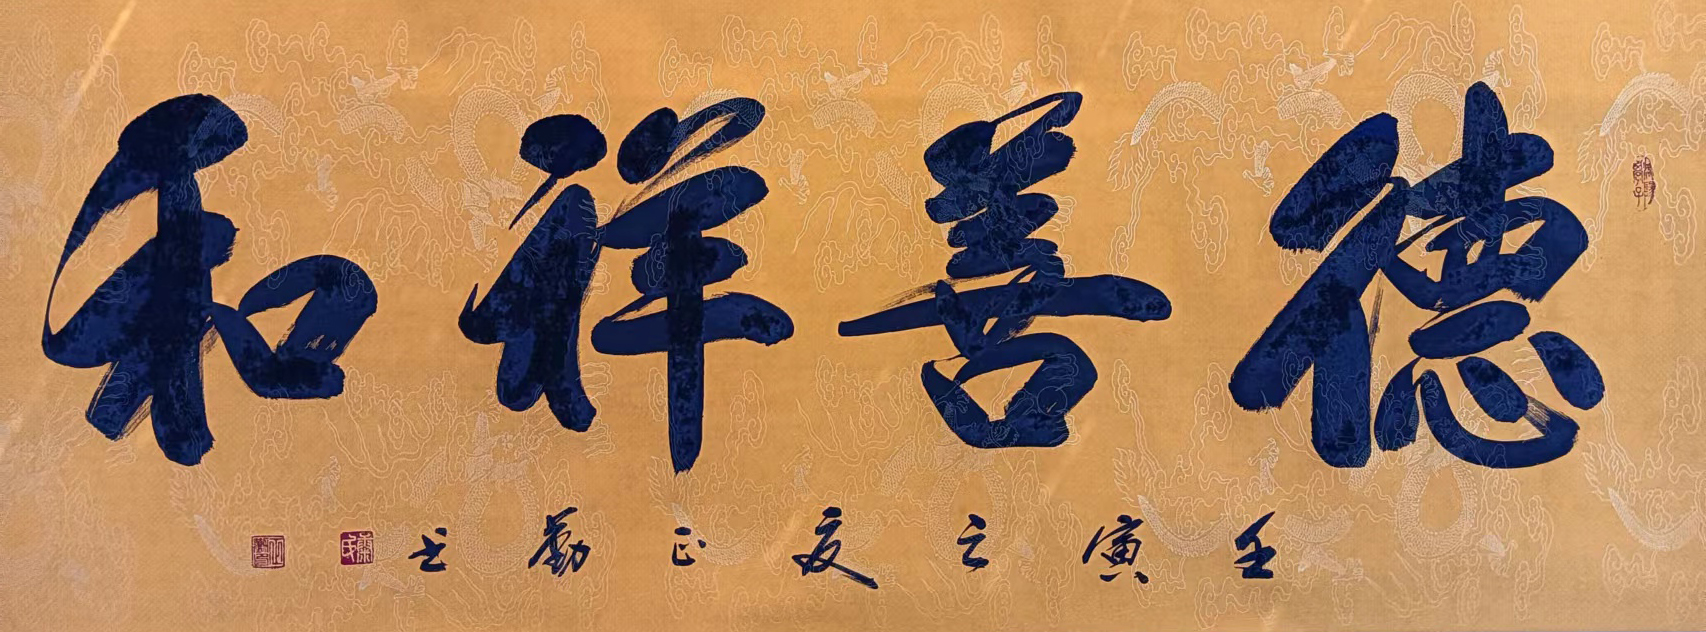 德善祥和
壬寅之夏正勤书